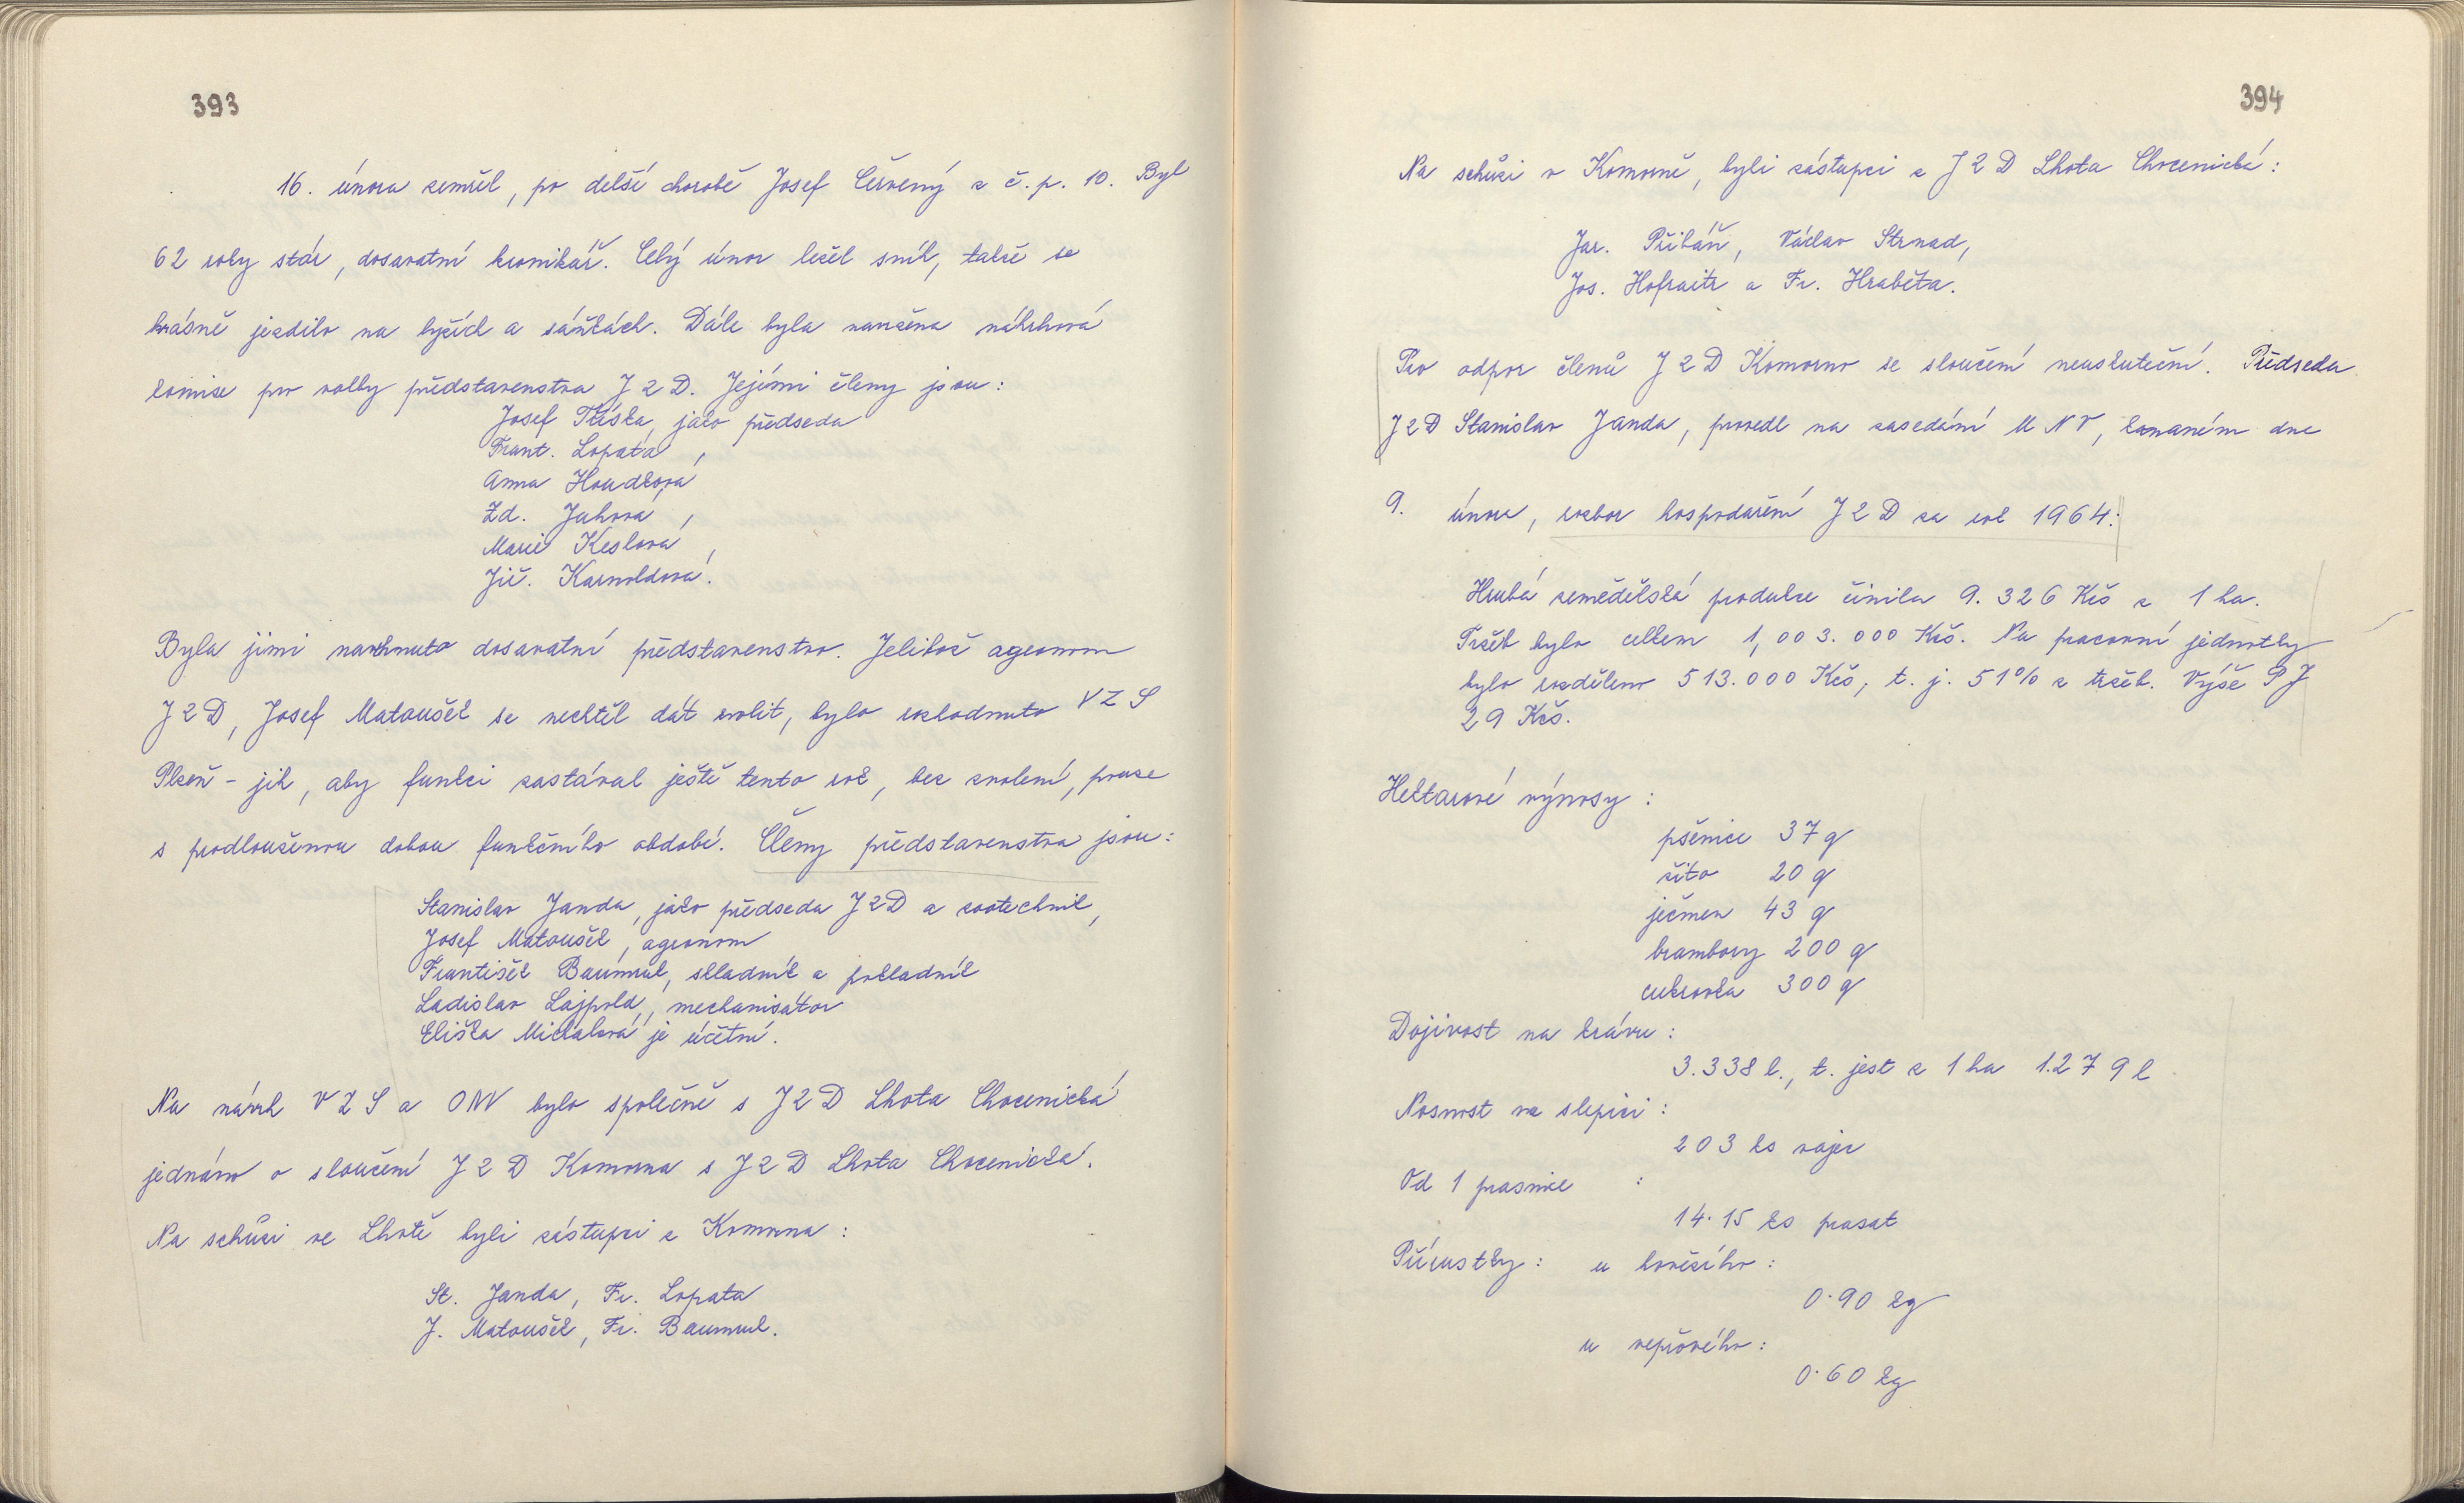 393
16. února zemřel, po delší chorobě Josef Červený z č. p. 10. Byl
62 roky stár, dosavatní kronikář. Celý únor ležel sníh, takže se
krásně jezdilo na lyžích a sáňkách. Dále byla navržena návrhová
komise pro volby představenstva JZD. Jejími členy jsou:
Josef Tříska, jako předseda
Frant. Lopata,
Anna Houdková
Zd. Juhová,
Marie Keslová,
Jiř. Karnoldová.
Byla jimi navrhnuto dosavatní představenstvo. Jelikož agronom
JZD, Josef Matoušek se nechtěl dát zvolit, bylo rozhodnuto VZS
Plzeň - jih, aby funkci zastával ještě tento rok, bez zvolení, pouze
s prodlouženou dobou funkčního období. Členy představenstva jsou:
Stanislav Janda, jako předseda JZD a zootechnik,
Josef Matoušek, agronom
František Baumruk, skladník a pokladník
Ladislav Lajpold, mechanisátor
Eliška Michalová je účetní.
Na návrh VZS a ONV bylo společně s JZD Lhota Chocenická
jednáno o sloučení JZD Komorna s JZD Lhota Chocenická.
Na schůzi ve Lhotě byli zástupci z Komorna:
St. Janda, Fr. Lopata
J. Matoušek, Fr. Baumruk.
394
Na schůzi v Komorně, byli zástupci z JZD Lhota Chocenická:
Jar. Přibáň, Václav Strnad,
Jos. Hofraitr a Fr. Hraběta.
Pro odpor členů JZD Komorno se sloučení neuskuteční. Předseda
JZD Stanislav Janda, provedl na zasedání MNV, konaném dne
9. února, rozbor hospodaření JZD za rok 1964:
Hrubá zemědělská produkce činila 9.326 Kčs z 1 ha.
Tržeb bylo celkem 1,003.000 Kčs. Na pracovní jednotky
bylo rozděleno 513.000 Kčs, t. j. 51% z tržeb. Výše PJ
29 Kčs.
Hektarové výnosy:
pšenice 37 q
žito 20 q
ječmen 43 q
brambory 200 q
cukrovka 300 q
Dojivost na krávu:
3.338 l., t. jest z 1 ha 1.279 l
Nosnost na slepici:
203 ks vajec
Od 1 prasnice :
14.15 ks prasat
Přírustky: u hovězího:
0.90 kg
u vepřového:
0.60 kg